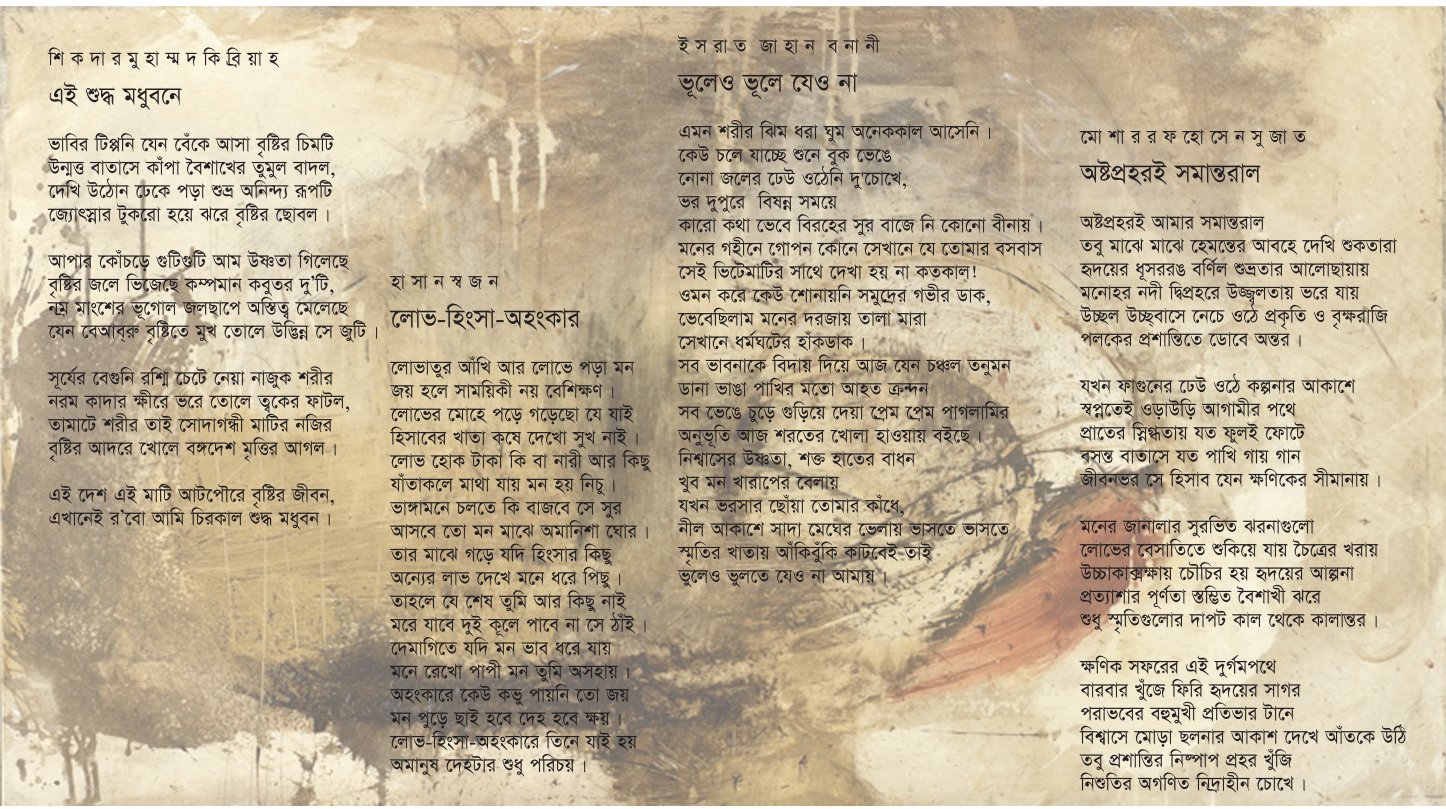 শিকদার মুহাম্মদ কিব্রিয়াহ
এই শুদ্ধ মধুবনে
ভাবির টিপ্পনি যেন বেঁকে আসা বৃষ্টির চিমটি
উন্মত্ত বাতাসে কাঁপা বৈশাখের তুমুল বাদল,
দেখি উঠোন ঢেকে পড়া শুভ্র অনিন্দ্য রূপটি
জ্যোৎস্নার টুকরো হয়ে ঝরে বৃষ্টির ছোবল।
আপার কোঁচড়ে গুটিগুটি আম উষ্ণতা গিলেছে
বৃষ্টির জলে ভিজেছে কম্পমান কবুতর দু'টি,
নম্র মাংশের ভূগোল জলছাপে অস্তিত্ব মেলেছে
যেন বেআব্রু বৃষ্টিতে মুখ তোলে উদ্ভিন্ন সে জুটি।
সূর্যের বেগুনি রশ্মি চেটে নেয়া নাজুক শরীর
নরম কাদার ক্ষীরে ভরে তোলে ত্বকের ফাটল,
তামাটে শরীর তাই সোদাগন্ধী মাটির নজির
বৃষ্টির আদরে খোলে বঙ্গদেশ মৃত্তির আগল।
এই দেশ এই মাটি আটপৌরে বৃষ্টির জীবন,
এখানেই র'বো আমি চিরকাল শুদ্ধ মধুবন।
হাসান স্বজন
লোভ-হিংসা-অহংকার
লোভাতুর আঁখি আর লোভে পড়া মন
জয় হলে সাময়িকী নয় বেশিক্ষণ।
লোভের মোহে পড়ে গড়েছো যে যাই
হিসাবের খাতা কষে দেখো সুখ নাই।
লোভ হোক টাকা কি বা নারী আর কিছু
যাঁতাকলে মাথা যায় মন হয় নিচু।
ভাঙ্গামনে চলতে কি বাজবে সে সুর
আসবে তো মন মাঝে অমানিশা ঘোর।
তার মাঝে গড়ে যদি হিংসার কিছু
অন্যের লাভ দেখে মনে ধরে পিছু।
তাহলে যে শেষ তুমি আর কিছু নাই
মরে যাবে দুই কূলে পাবে না সে ঠাঁই।
দেমাগিতে যদি মন ভাব ধরে যায়
মনে রেখো পাপী মন তুমি অসহায়।
অহংকারে কেউ কভু পায়নি তো জয়
মন পুড়ে ছাই হবে দেহ হবে ক্ষয়।
লোভ-হিংসা-অহংকারে তিনে যাই হয়
অমানুষ দেহটার শুধু পরিচয়।
ইসরাত জাহান বনানী
ভূলেও ভূলে যেও না
এমন শরীর ঝিম ধরা ঘুম অনেককাল আসেনি।
কেউ চলে যাচ্ছে শুনে বুক ভেঙে
নোনা জলের ঢেউ ওঠেনি দু'চোখে,
ভর দুপুরে বিষন্ন সময়ে
কারো কথা ভেবে বিরহের সুর বাজে নি কোনো বীনায়।
মনের গহীনে গোপন কোনে সেখানে যে তোমার বসবাস
সেই ভিটেমাটির সাথে দেখা হয় না কতকাল!
ওমন করে কেউ শোনায়নি সমুদ্রের গভীর ডাক,
ভেবেছিলাম মনের দরজায় তালা মারা
সেখানে ধর্মঘটের হাঁকডাক।
সব ভাবনাকে বিদায় দিয়ে আজ যেন চঞ্চল তনুমন
ডানা ভাঙা পাখির মতো আহত ক্রন্দন
সব ভেঙে চুড়ে গুড়িয়ে দেয়া প্রেম প্রেম পাগলামির
অনুভূতি আজ শরতের খোলা হাওয়ায় বইছে।
নিশ্বাসের উষ্ণতা, শক্ত হাতের বাধন
খুব মন খারাপের বেলায়
যখন ভরসার ছোঁয়া তোমার কাঁধে,
নীল আকাশে সাদা মেঘের ভেলায় ভাসতে ভাসতে
স্মৃতির খাতায় আঁকিবুঁকি কাটবেই তাই
ভুলেও ভুলতে যেও না আমায়।
মোশাররফ হোসেন সুজাত
অষ্টপ্রহরই সমান্তরাল
অষ্টপ্রহরই আমার সমান্তরাল
তবু মাঝে মাঝে হেমন্তের আবহে দেখি শুকতারা
হৃদয়ের ধূসররঙ বর্ণিল শুভ্রতার আলোছায়ায়
মনোহর নদী দ্বিপ্রহরে উজ্জ্বলতায় ভরে যায়
উচ্ছল উচ্ছ্বাসে নেচে ওঠে প্রকৃতি ও বৃক্ষরাজি
পলকের প্রশান্তিতে ডোবে অন্তর।
যখন ফাগুনের ঢেউ ওঠে কল্পনার আকাশে
স্বপ্নতেই ওড়াউড়ি আগামীর পথে
প্রাতের স্নিগ্ধতায় যত ফুলই ফোটে
বসন্ত বাতাসে যত পাখি গায় গান
জীবনভর সে হিসাব যেন ক্ষণিকের সীমানায়।
মনের জানালার সুরভিত ঝরনাগুলো
লোভের বেসাতিতে শুকিয়ে যায় চৈত্রের খরায়
উচ্চাকাঙ্ক্ষায় চৌচির হয় হৃদয়ের আল্পনা
প্রত্যাশার পূর্ণতা স্তম্ভিত বৈশাখী ঝরে
শুধু স্মৃতিগুলোর দাপট কাল থেকে কালান্তর।
ক্ষণিক সফরের এই দুর্গমপথে
বারবার খুঁজে ফিরি হৃদয়ের সাগর
পরাভবের বহুমুখী প্রতিভার টানে
বিশ্বাসে মোড়া ছলনার আকাশ দেখে আঁতকে উঠি
তবু প্রশান্তির নিষ্পাপ প্রহর খুঁজি
নিশুতির অগণিত নিদ্রাহীন চোখে।